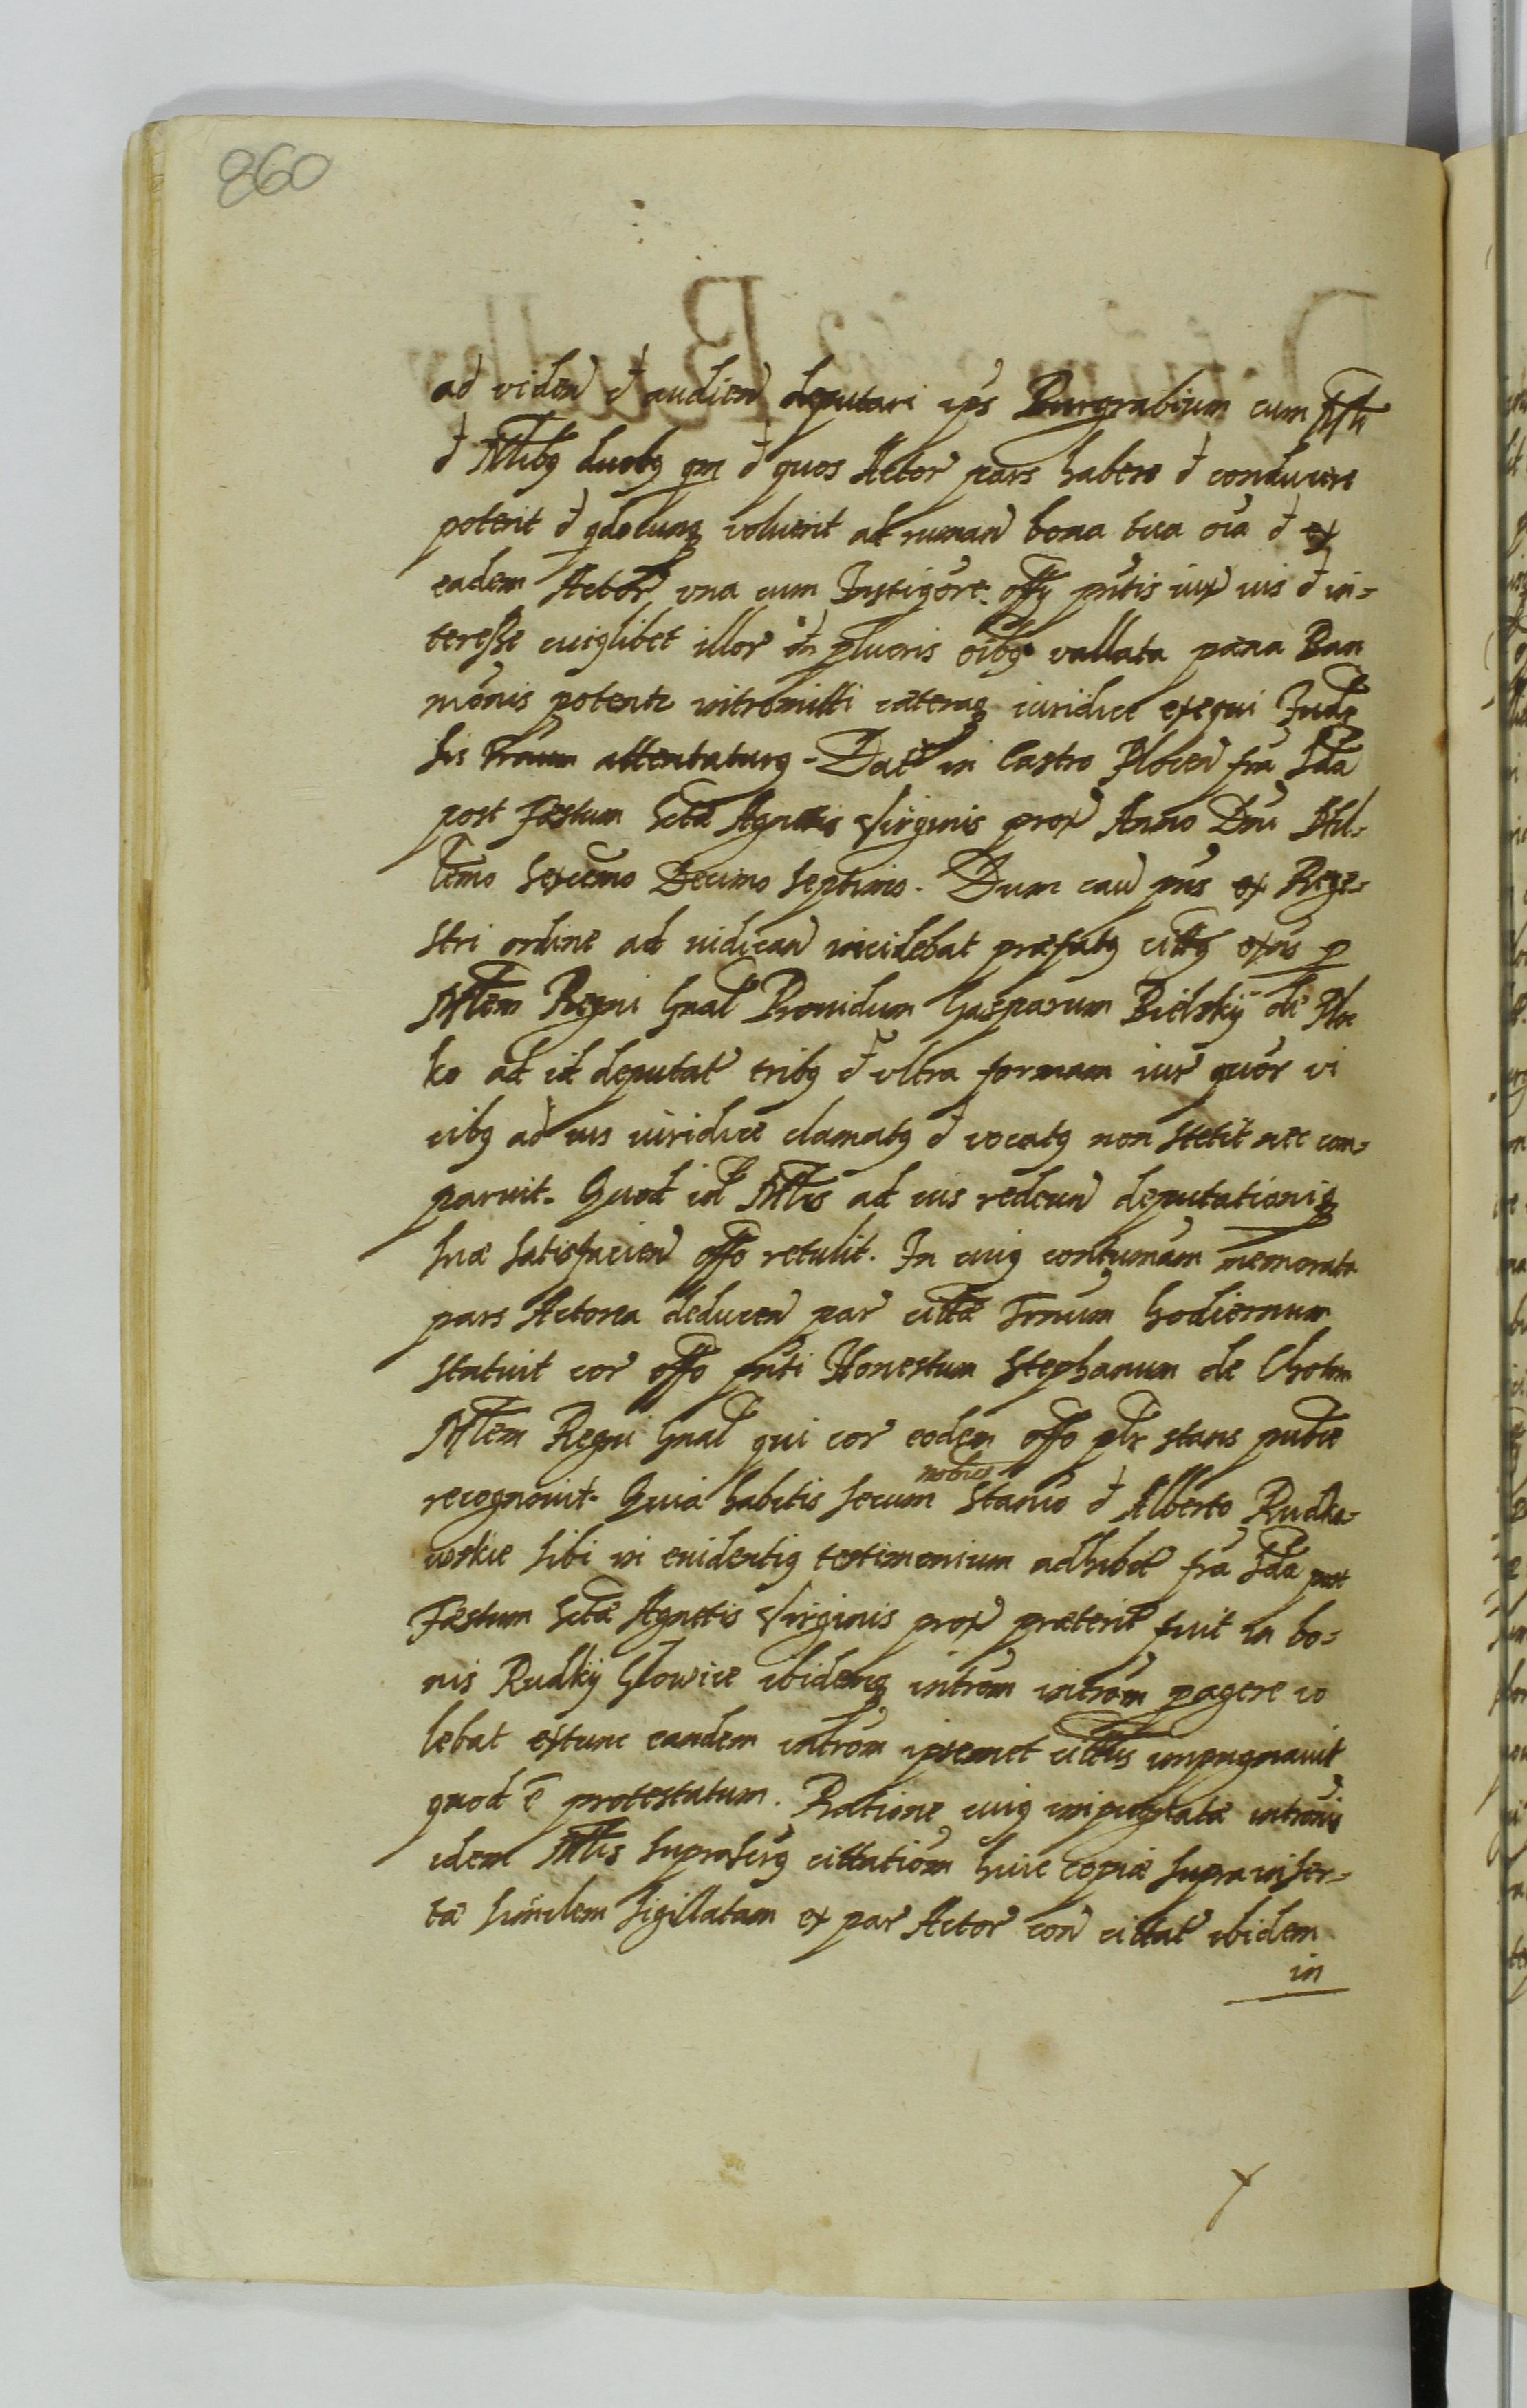 860
ad viden et audien deputari ips Burgrabium cum
et Mlibq duobq qm et quos Actor pars habere et conducere
poterit et qdocunq voluerit ad ruman bona tua oia et ex
eadem Actor una cum Instigore offy pntis iux ius et in-
teresse cuiqlibet illor pluoris oibq vallata pœna Ban
nionis potenti intromitti cæteraq iuridice exequi Judr
his Trnum attentaturq - Dat in Castro Plocen fra 2da
post Fæstum Sctæ Agnetis Virginis prox Anno Dni Mil-
lemo Sexcemo Decimo Septimo. Dum cau pns ex Rege-
stri ordine ad iudican incidebat præfatq cittq expns p
Mlem Regni Gnal Prouidum Gasparum Bielsky de Plo
ko ad id deputat tribq et ultra formam iur quor vi
cibq ad ius iuridice clamatq et vocatq non stetit nec com-
paruit. Quod id Mlis ad ius redeun deputationiq
suæ satisfacien offo retulit. In cuiq contumam memorata
pars Actorea deducen par cittæ Trnum hodiernum
statuit cor offo pnti Honestum Stephanum de Cholm
Mlem Regni Gnal qui cor eodem offo plr stans publce
recognouit. Quia habitis secum nobiles Stanio et Alberto Rudko-
wskie sibi in euidentiq testimonium adhibit fra 2da post
Fæstum Sctæ Agnetis Virginis prox præterit fuit in bo-
nis Rudky Głowice ibidemq introm introm pagere vo
lebat extunc eandem introm ipsemet cittus impugnauit
quod ē protestatum. Ratione cuiq impugnatæ intronis
idem Mlis suprascrq cittatiom huic copiæ suprainser-
tæ similem sigillatam ex par Actor con cittat ibidem
in